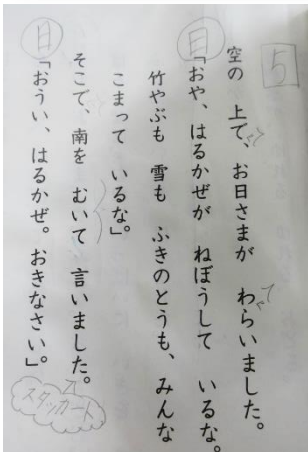 5
空の 上で、お日さまが わらいました。
日
「おや、はるかぜが ねぼうして いるな。
竹やぶも 雪も ふきのとうも、みんな
こまって いるな。」
そこで、南を むいて 言いました。
日
「おうい、はるかぜ。おきなさい。」
スタッカート